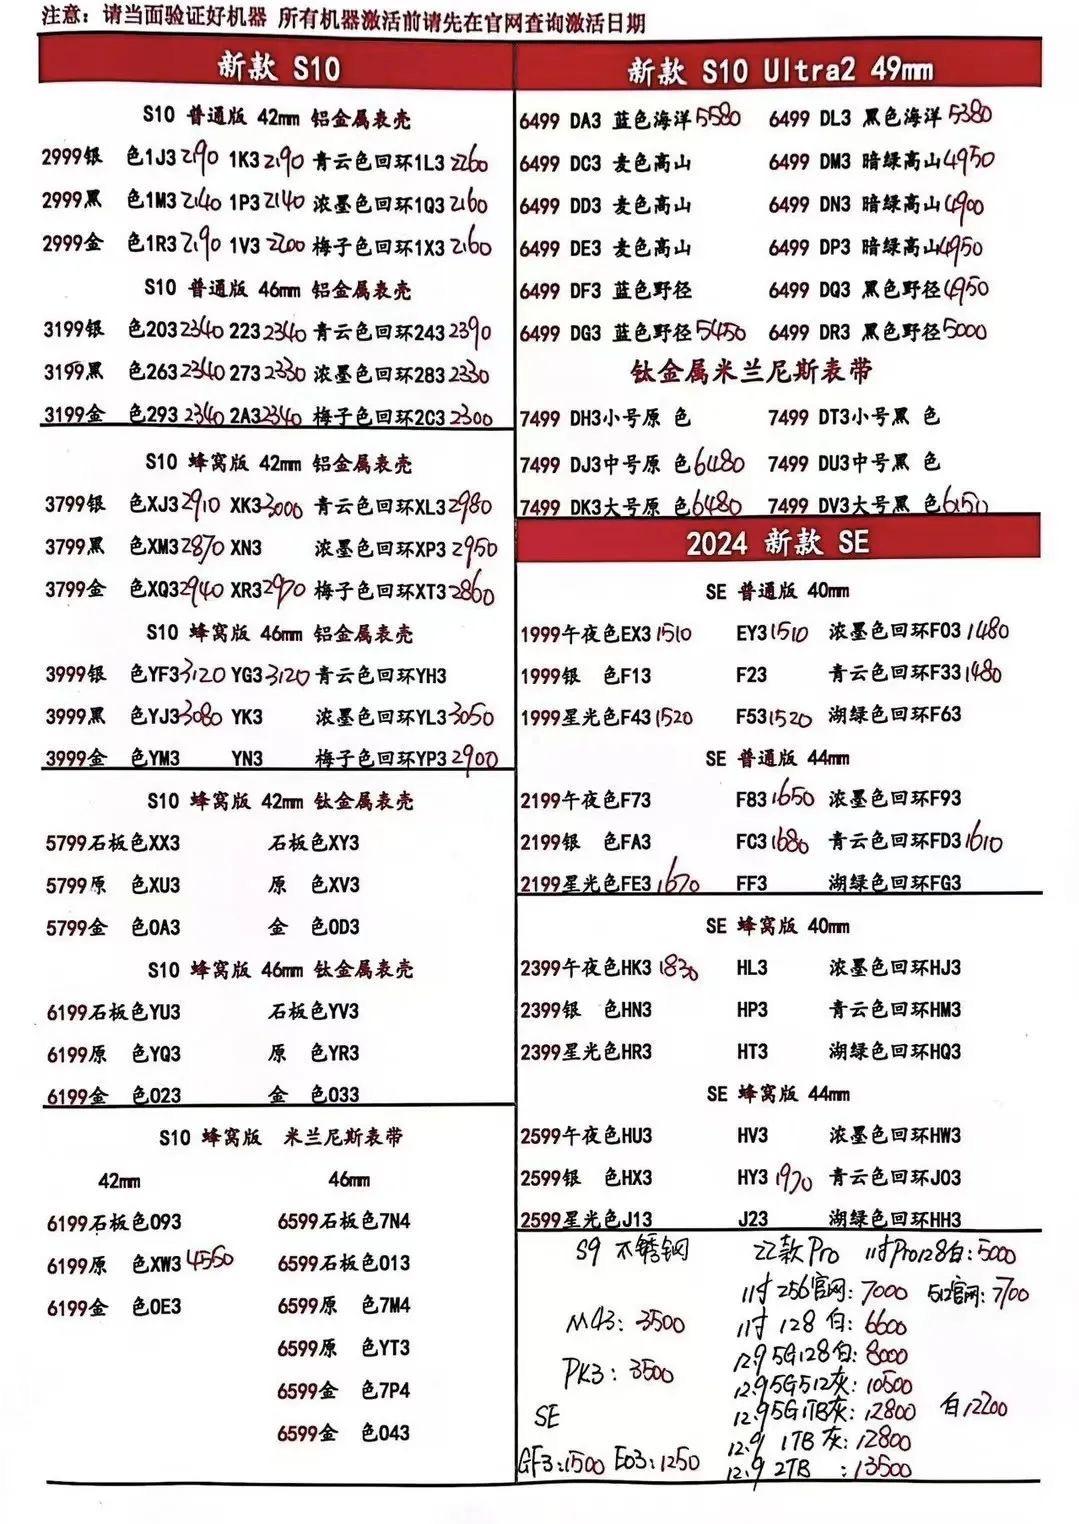 注意：请当面验证好机器 所有机器激活前请先在官网查询激活日期
新款 S10
S10 普通版 42mm 铝金属表壳
2999银 色1J3 2190 1K3 2190 青云色回环1L3 2260
2999黑 色1M3 2140 1P3 2140 浓墨色回环1Q3 2160
2999金 色1R3 2190 1V3 2200 梅子色回环1X3 2160
S10 普通版 46mm 铝金属表壳
3199银 色203 2340 223 2340 青云色回环243 2390
3199黑 色263 2340 273 2330 浓墨色回环283 2330
3199金 色293 2340 2A3 2340 梅子色回环2C3 2300
S10 蜂窝版 42mm 铝金属表壳
3799银 色XJ3 2910 XK3 3000 青云色回环XL3 2980
3799黑 色XM3 2870 XN3 浓墨色回环XP3 2950
3799金 色XQ3 2940 XR3 2970 梅子色回环XT3 2860
S10 蜂窝版 46mm 铝金属表壳
3999银 色YF3 3120 YG3 3120 青云色回环YH3
3999黑 色YJ3 3080 YK3 浓墨色回环YL3 3050
3999金 色YM3 YN3 梅子色回环YP3 2900
S10 蜂窝版 42mm 钛金属表壳
5799石板色XX3 石板色XY3
5799原 色XU3 原 色XV3
5799金 色0A3 金 色0D3
S10 蜂窝版 46mm 钛金属表壳
6199石板色YU3 石板色YV3
6199原 色YQ3 原 色YR3
6199金 色023 金 色033
S10 蜂窝版 米兰尼斯表带
42mm 46mm
6199石板色093 6599石板色7N4
6199原 色XW3 4550 6599石板色013
6199金 色0E3 6599原 色7M4
6599原 色YT3
6599金 色7P4
6599金 色043
新款 S10 Ultra2 49mm
6499 DA3 蓝色海洋 5580 6499 DL3 黑色海洋 5380
6499 DC3 麦色高山 6499 DM3 暗绿高山 4950
6499 DD3 麦色高山 6499 DN3 暗绿高山 4900
6499 DE3 麦色高山 6499 DP3 暗绿高山 4950
6499 DF3 蓝色野径 6499 DQ3 黑色野径 4950
6499 DG3 蓝色野径 5450 6499 DR3 黑色野径 5000
钛金属米兰尼斯表带
7499 DH3小号原 色 7499 DT3小号黑 色
7499 DJ3中号原 色 6480 7499 DU3中号黑 色
7499 DK3大号原 色 6480 7499 DV3大号黑 色 6150
2024 新款 SE
SE 普通版 40mm
1999午夜色EX3 1510 EY3 1510 浓墨色回环F03 1480
1999银 色F13 F23 青云色回环F33 1480
1999星光色F43 1520 F53 1520 湖绿色回环F63
SE 普通版 44mm
2199午夜色F73 F83 1650 浓墨色回环F93
2199银 色FA3 FC3 1680 青云色回环FD3 1610
2199星光色FE3 1670 FF3 湖绿色回环FG3
SE 蜂窝版 40mm
2399午夜色HK3 1830 HL3 浓墨色回环HJ3
2399银 色HN3 HP3 青云色回环HM3
2399星光色HR3 HT3 湖绿色回环HQ3
SE 蜂窝版 44mm
2599午夜色HU3 HV3 浓墨色回环HW3
2599银 色HX3 HY3 1970 青云色回环J03
2599星光色J13 J23 湖绿色回环HH3
S9 不锈钢 22款Pro 11寸Pro128白：5000
11寸256官网：7000 512官网：7700
M43：3500 11寸 128 白：6600
12.9 5G128白：8000
PK3：3500 12.9 5G512灰：10500
SE 12.9 5G1TB灰：12800 白12200
12.9 1TB灰：12800
GF3：1500 E03：1250 12.9 2TB ：13500